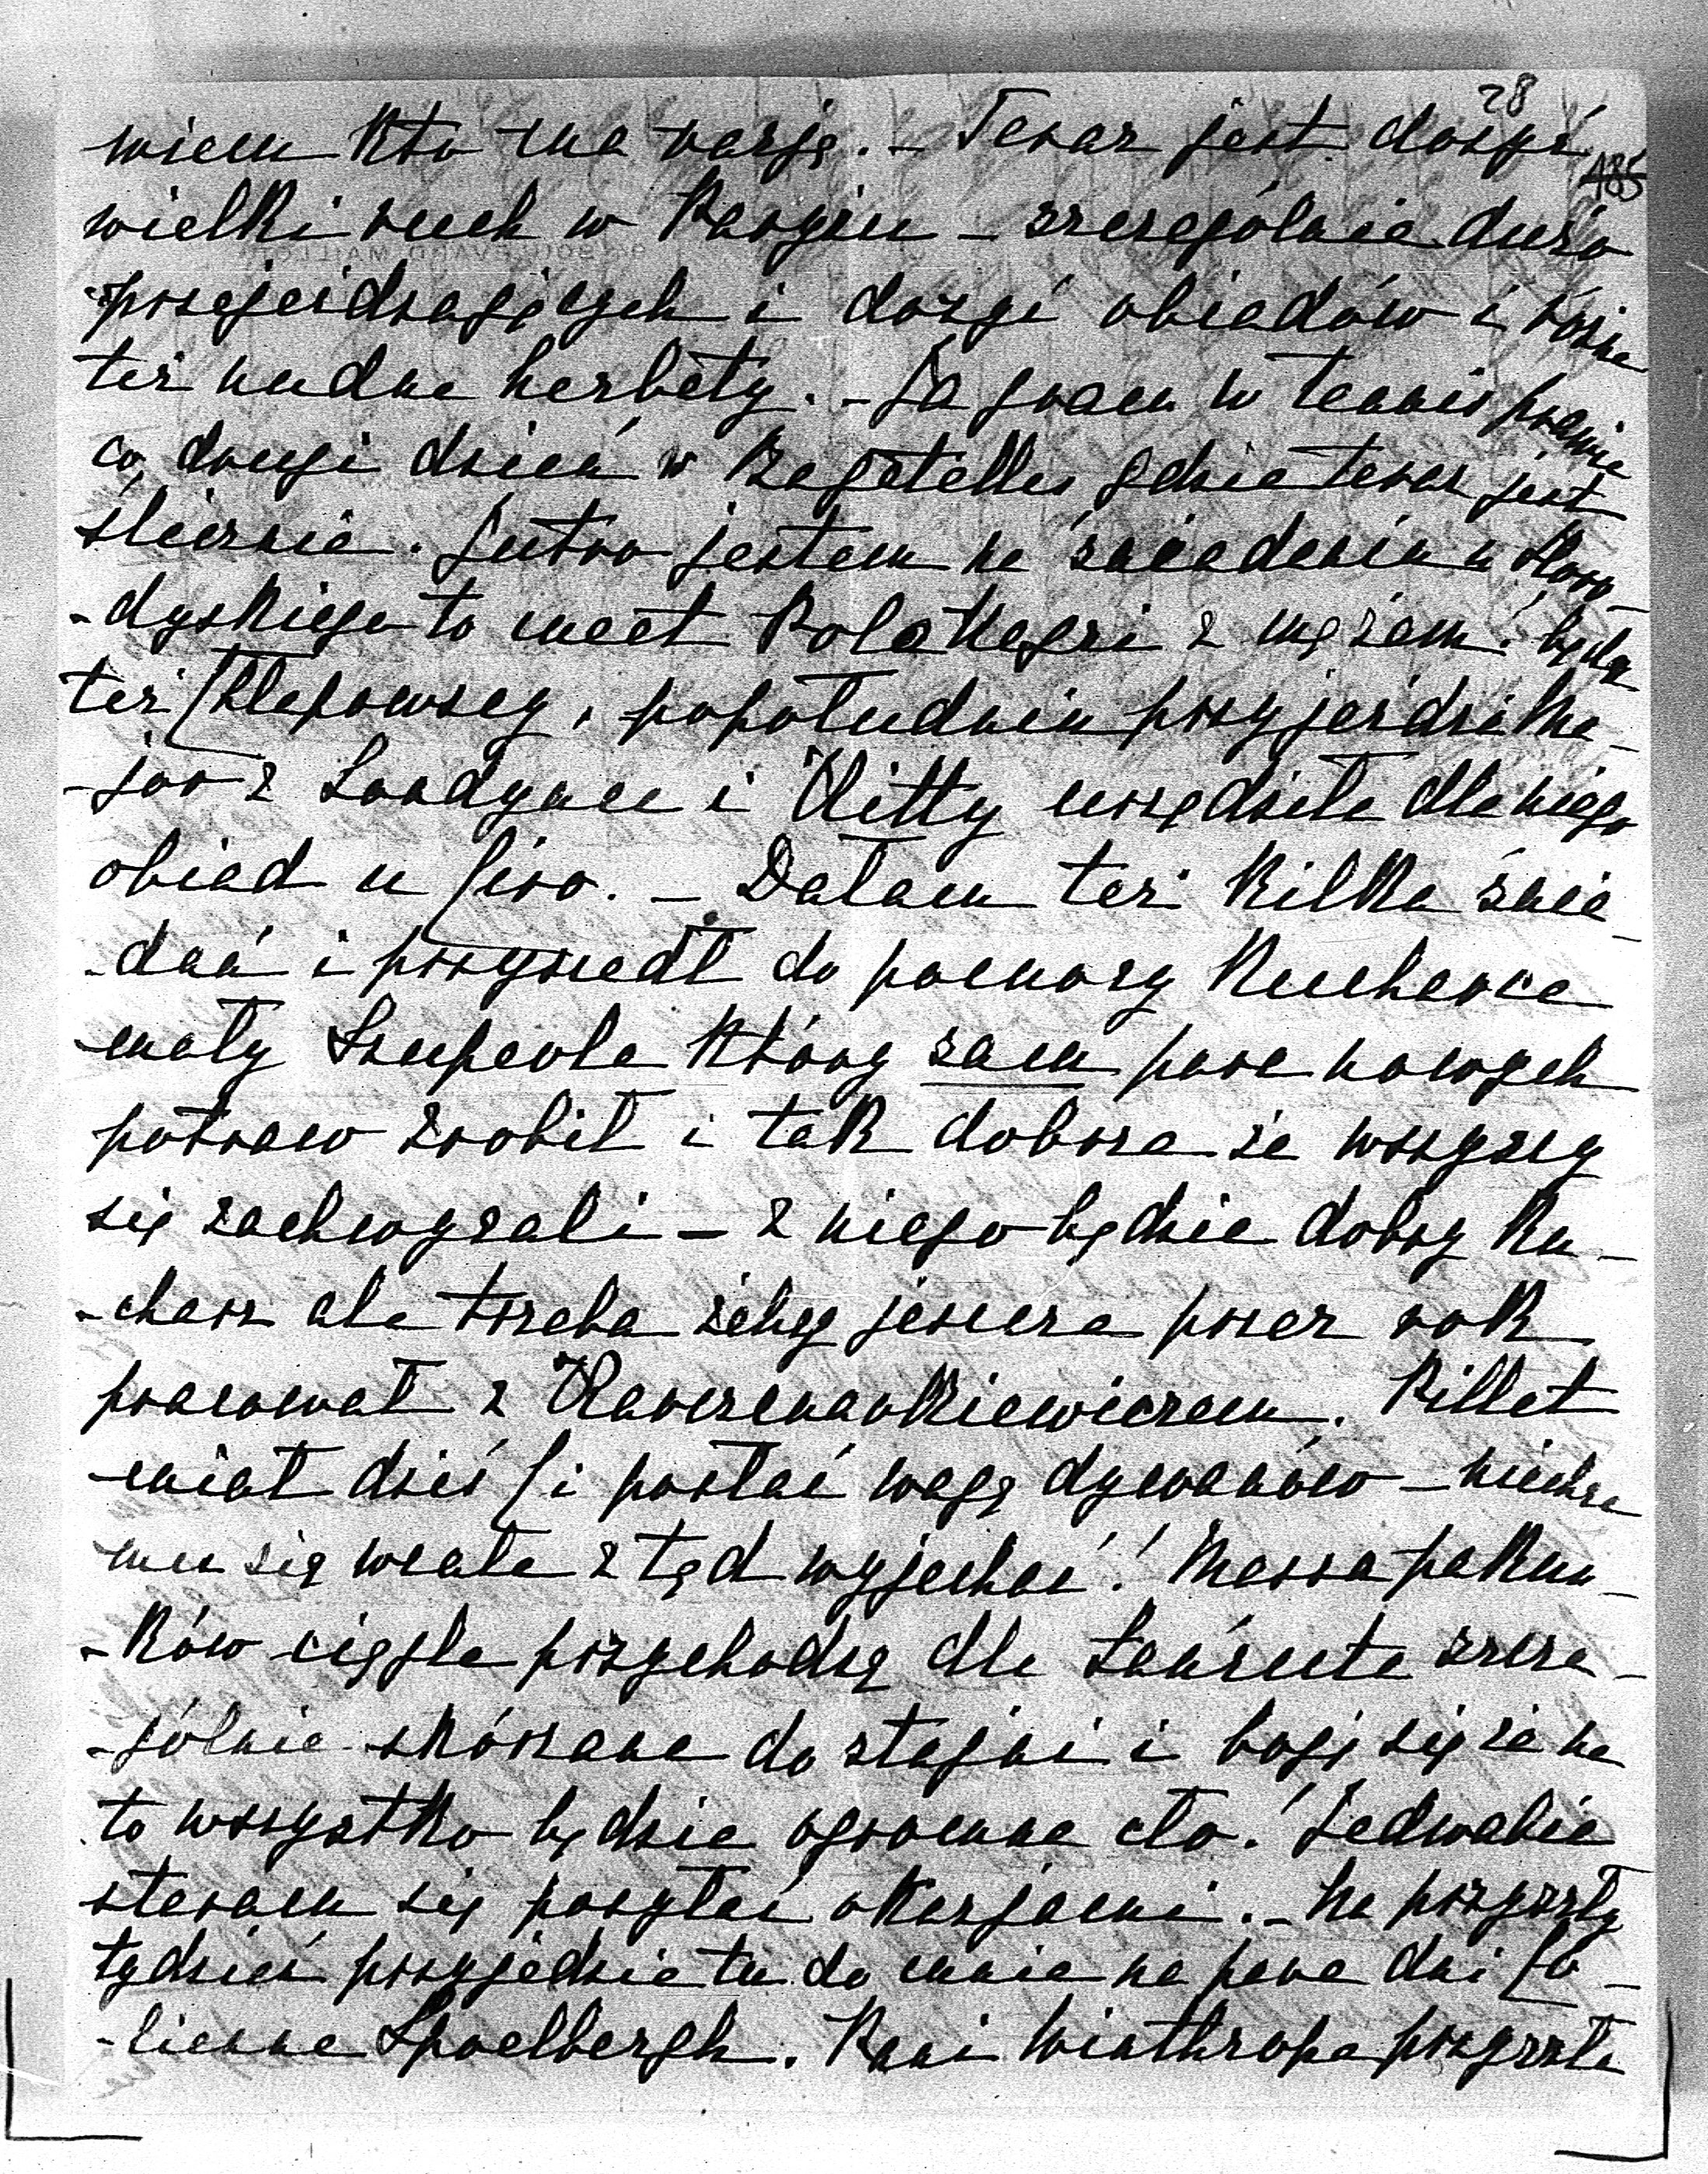 28
wiem kto ma rację. – Teraz jest dosyć
185
wielki ruch w Paryżu – szczególnie dużo
przejeżdzających i dosyć obiadów i różne
też nudne herbaty. – Ja gram w tennis prawie
co drugi dzień w Bagatelles gdzie teraz jest
ślicznie. Jutro jestem na śniadaniu u Horo-
-dyskiego to meet Pola Negri z mężem! będą
też Chłapowscy, popołudniu przyjeżdża Ma-
-jor z Londynu i Kitty urządziła dla niego
obiad u Ciro. – Dałam też kilka śnia-
-dań i przyszedł do pomocy Kucharce
mały Szupeola który sam pare nowych
potraw zrobił i tak dobrze że wszyscy
się zachwyzali – z niego będzie dobry ku-
-charz ale trzeba żeby jeszcze przez rok
pracował z Kaczmarkiewiczem. Billet
miał dziś Ci posłać wagę dywanów – niechce
mu się wcale z tąd wyjechać! Massa pakun-
-ków ciągle przychodzą dla Łańcuta szcze-
-gólnie skórzane do stajni i boję się że na
to wszystko będzie ogromne cło! Jedwabie
staram się posyłać okazjami. – Na przyszły
tydzień przyjedzie tu do mnie na pare dni Co-
-lienne Spoelbergh. Pani Winthropa przyszła